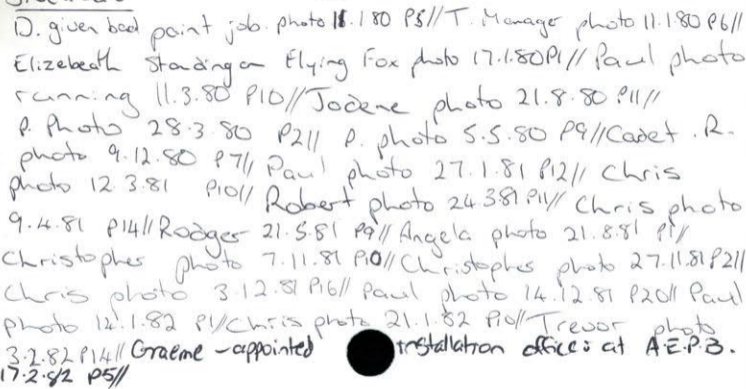 D. given bad paint job. photo 11.1.80 P5// T. Manager photo 11.1.80 P6//
Elizebeath Standing on Flying Fox photo 17.1.80 P1// Paul photo
running 11.3.80 P10// Jodene photo 21.8.80 P11//
P. Photo 28.3.80 P2// P. photo 5.5.80 P9// Cadet .R.
photo 9.12.80 P7// Paul photo 27.1.81 P12// Chris
photo 12.3.81 P10// Robert photo 24.3.81 P11// Chris photo
9.4.81 P14// Rodger 21.5.81 P9// Angela photo 21.8.81 P1//
Christopher photo 7.11.81 P10// Christopher photo 27.11.81 P21//
Chris photo 3.12.81 P16// Paul photo 14.12.81 P20// Paul
photo 12.1.82 P1// Chris photo 21.1.82 P10// Trevor photo
3.2.82 P14// Graeme - appointed installation officer at A.E.P.B.
17.2.82 P5//